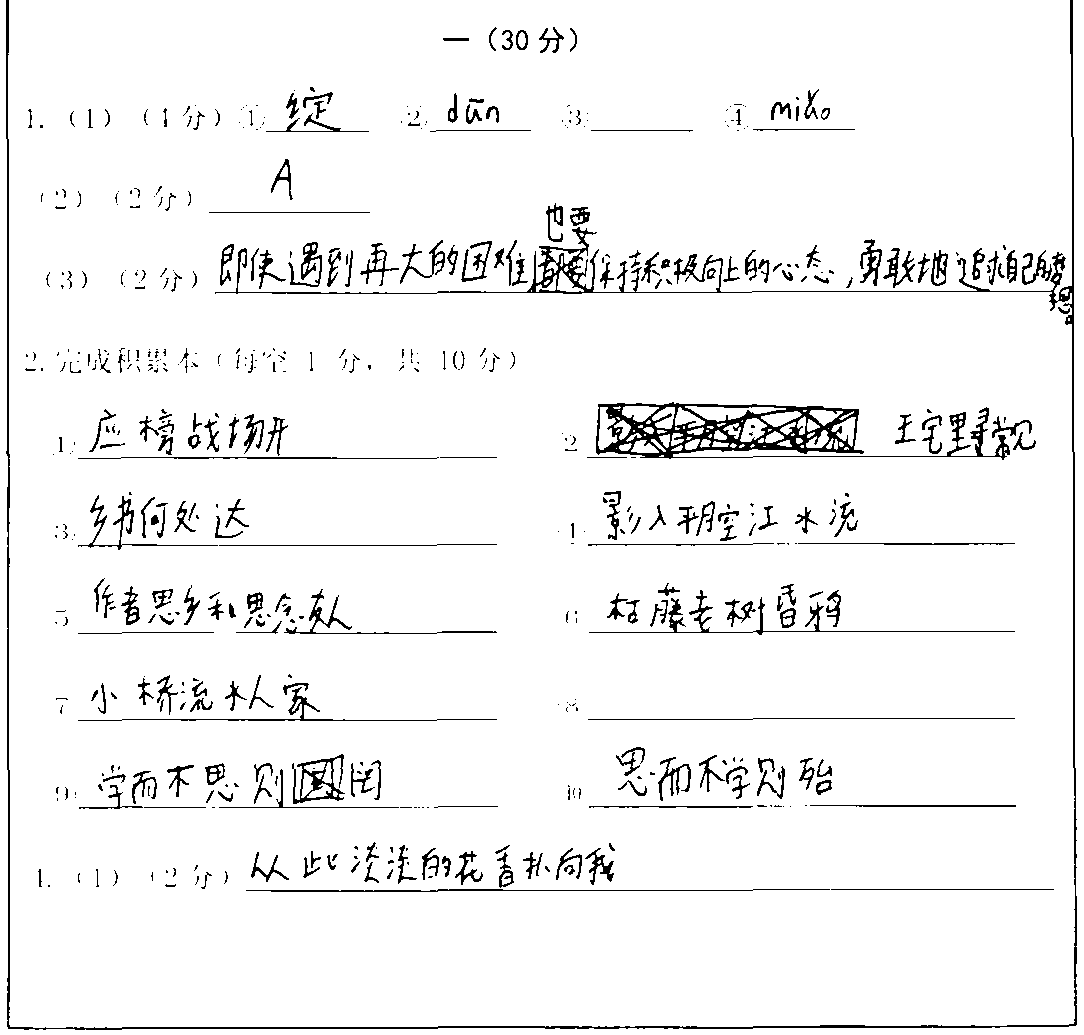 一（30 分）
1.（1）（4 分）① 绽 ② dūn ③ ④ miǎo
（2）（2分） A
也要
（3）（2 分） 即使遇到再大的困难保持积极向上的心态，勇敢地追求自己的梦
想。
2. 完成积累本（每空 1 分，共 10 分）
1. 应榜战场开 2 王宅里寻常见
3. 乡书何处达 4 影入平羌江水流
5 作者思乡和思念友人 6 枯藤老树昏鸦
7 小桥流水人家 8
9. 学而不思则罔 10 思而不学则殆
4.（1）（2 分） 从此淡淡的花香扑向我